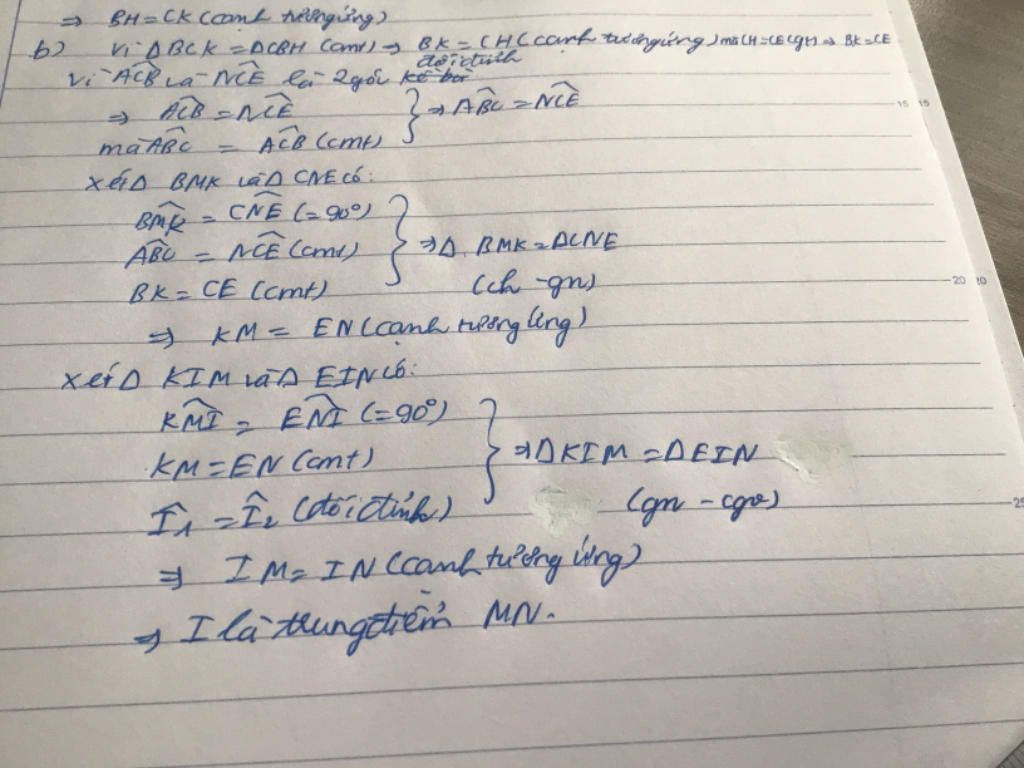 ⇒ BH = CK (cạnh tương ứng)
b) Vì ΔBCK = ΔCBH (cmt) ⇒ BK = CH (cạnh tương ứng) mà CH = CE (gt) ⇒ BK = CE
đối đỉnh
Vì ACB và NCE là 2 góc kề bù
⇒ ACB = NCE
mà ABC = ACB (cmt) } ⇒ ABC = NCE
Xét Δ BMK và Δ CNE có:
BMK = CNE (= 90°)
ABC = NCE (cmt) } ⇒ Δ BMK = ΔCNE
BK = CE (cmt) (ch - gn)
⇒ KM = EN (cạnh tương ứng)
Xét Δ KIM và Δ EIN có:
KMI = ENI (= 90°)
KM = EN (cmt) } ⇒ ΔKIM = ΔEIN
I1 = I2 (đối đỉnh) (gn - cgv)
⇒ IM = IN (cạnh tương ứng)
⇒ I là trung điểm MN.
15 15
20 20
25